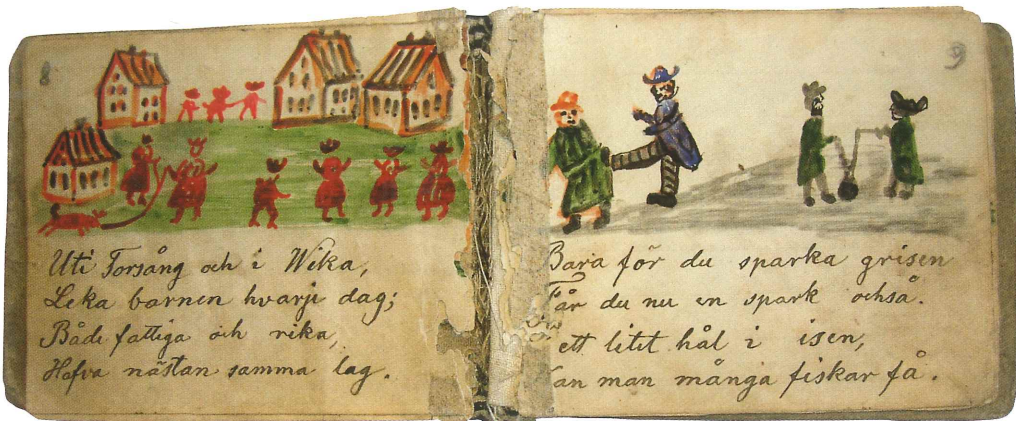 8
Uti Torsång och i Wika,
Leka barnen hvarje dag;
Både fattiga och rika,
Hafva nästan samma lag.
9
Bara för du sparka grisen
Får du nu en spark också.
ett litet hål i isen,
kan man många fiskar få.